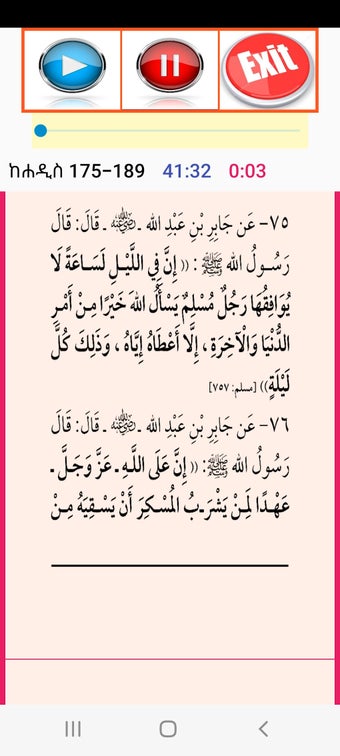 Exit
ከሐዲስ 175-189 41:32 0:03
٧٥- عَن جَابِرِ بْنِ عَبْدِ الله ـ رضي الله عنه ـ قَالَ: قَالَ
رَسُولُ الله ﷺ: (( إِنَّ فِي اللَّيْلِ لَسَاعَةً لَا
يُوَافِقُهَا رَجُلٌ مُسْلِمٌ يَسْأَلُ اللهَ خَيْرًا مِنْ أَمْرِ
الدُّنْيَا وَالْآخِرَةِ، إِلَّا أَعْطَاهُ إِيَّاهُ، وَذَلِكَ كُلَّ
لَيْلَةٍ)) [مسلم: ٧٥٧]
٧٦- عَن جَابِرِ بْنِ عَبْدِ الله ـ رضي الله عنه ـ قَالَ: قَالَ
رَسُولُ الله ﷺ: (( إِنَّ عَلَى اللَّهِ ـ عَزَّ وَجَلَّ ـ
عَهْدًا لِمَنْ يَشْرَبُ المُسْكِرَ أَنْ يَسْقِيَهُ مِنْ